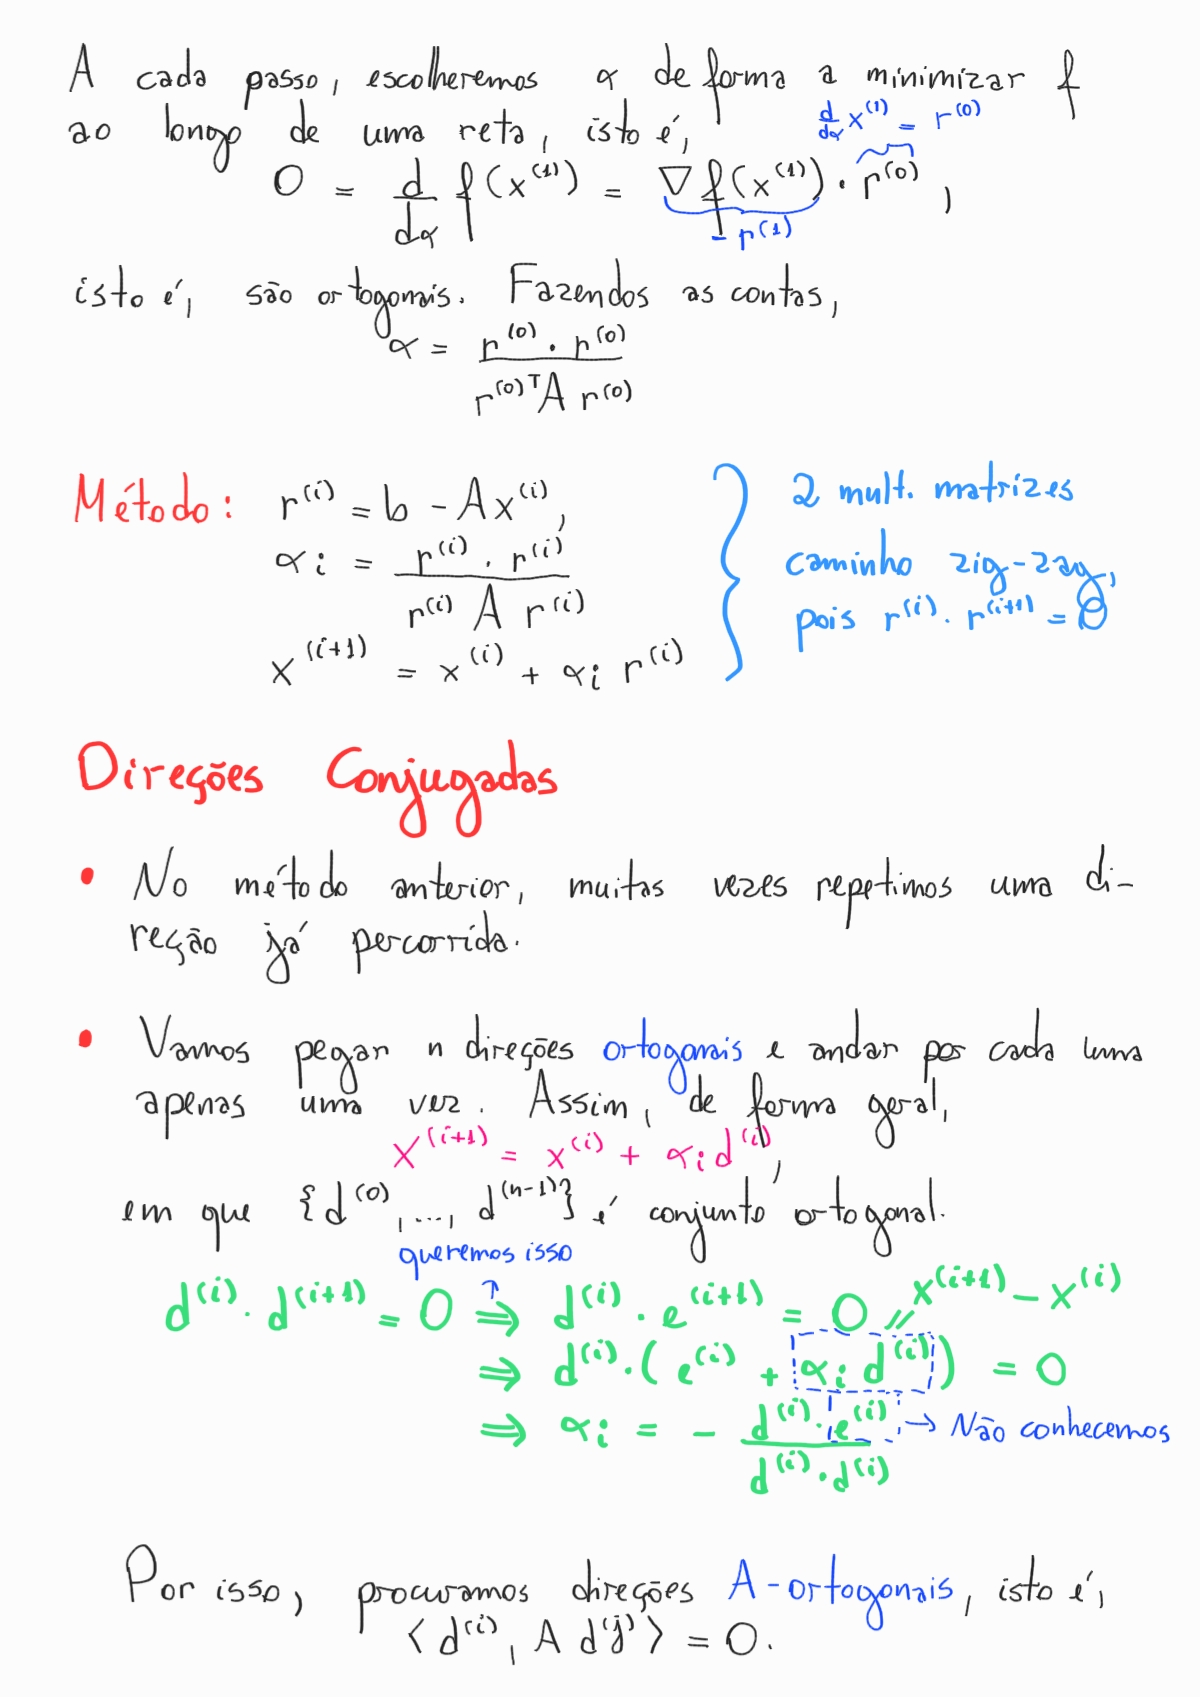 A cada passo, escolheremos α de forma a minimizar f
ao longo de uma reta, isto é,
d/dα x^(1) = r^(0)
0 = d/dα f(x^(1)) = ∇f(x^(1)) · r^(0),
- r^(1)
isto é, são ortogonais. Fazendos as contas,
α = r^(0) · r^(0) / r^(0)T A r^(0)
Método: r^(i) = b - Ax^(i),
α_i = r^(i) · r^(i) / r^(i) A r^(i)
x^(i+1) = x^(i) + α_i r^(i)
2 mult. matrizes
caminho zig-zag,
pois r^(i) · r^(i+1) = 0
Direções Conjugadas
• No método anterior, muitas vezes repetimos uma di-
reção já percorrida.
• Vamos pegar n direções ortogonais e andar por cada uma
apenas uma vez. Assim, de forma geral,
x^(i+1) = x^(i) + α_i d^(i),
em que {d^(0), ..., d^(n-1)} é conjunto ortogonal.
queremos isso
↑
d^(i) · d^(i+1) = 0 ⇒ d^(i) · e^(i+1) = 0 // x^(i+1) - x^(i)
⇒ d^(i) · (e^(i) + α_i d^(i)) = 0
⇒ α_i = - d^(i) · e^(i) / d^(i) · d^(i) → Não conhecemos
Por isso, procuramos direções A-ortogonais, isto é,
⟨d^(i), A d^(j)⟩ = 0.